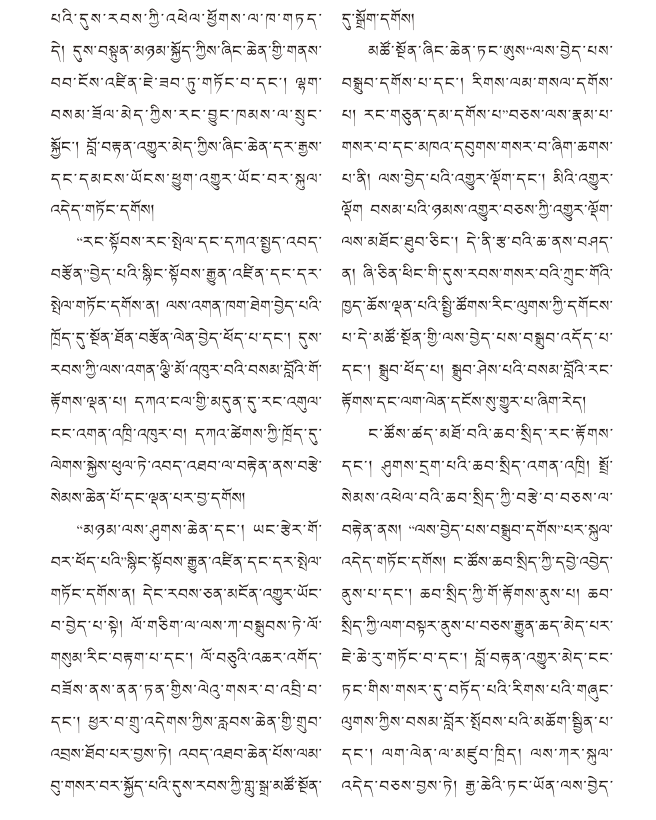 པའི་དུས་རབས་ཀྱི་འཕེལ་ཕྱོགས་ལ་ཁ་གཏད་
དེ། དུས་བསྟུན་མཉམ་སྐྱོད་ཀྱིས་ཞིང་ཆེན་གྱི་གནས་
བབ་ངོས་འཛིན་ཇེ་ཟབ་ཏུ་གཏོང་བ་དང་། ལྷག་
བསམ་ཟོལ་མེད་ཀྱིས་རང་བྱུང་ཁམས་ལ་སྲུང་
སྐྱོང་། བློ་བརྟན་འགྱུར་མེད་ཀྱིས་ཞིང་ཆེན་དར་རྒྱས་
དང་དམངས་ཡོངས་ཕྱུག་འགྱུར་ཡོང་བར་སྐུལ་
འདེད་གཏོང་དགོས།
“རང་སྟོབས་རང་སྤེལ་དང་དཀའ་སྤྱད་འབད་
བརྩོན”བྱེད་པའི་སྙིང་སྟོབས་རྒྱུན་འཛིན་དང་དར་
སྤེལ་གཏོང་དགོས་ན། ལས་འགན་ཁག་ཐེག་བྱེད་པའི་
ཁྲོད་དུ་སྔོན་ཐོན་བརྩོན་ལེན་བྱེད་ཕོད་པ་དང་། དུས་
རབས་ཀྱི་ལས་འགན་ལྕི་མོ་འཁུར་བའི་བསམ་བློའི་གོ་
རྟོགས་ལྡན་པ། དཀའ་ངལ་གྱི་མདུན་དུ་རང་འགུལ་
ངང་འགན་འཁྲི་འཁུར་བ། དཀའ་ཚེགས་ཀྱི་ཁྲོད་དུ་
ལེགས་སྐྱེས་ཕུལ་ཏེ་འབད་འཐབ་ལ་བརྟེན་ནས་བརྩེ་
སེམས་ཆེན་པོ་དང་ལྡན་པར་བྱ་དགོས།
“མཉམ་ལས་ཤུགས་ཆེན་དང་། ཡང་རྩེར་གོ་
བར་ཕོད་པའི”སྙིང་སྟོབས་རྒྱུན་འཛིན་དང་དར་སྤེལ་
གཏོང་དགོས་ན། དེང་རབས་ཅན་མངོན་འགྱུར་ཡོང་
བ་བྱེད་པ་སྟེ། ལོ་གཅིག་ལ་ལས་ཀ་བསྒྲུབས་ཏེ་ལོ་
གསུམ་རིང་བརྟག་པ་དང་། ལོ་བཅུའི་འཆར་འགོད་
བཟོས་ནས་ནན་ཏན་གྱིས་ལེའུ་གསར་བ་འབྲི་བ་
དང་། ཕྱར་བ་གྲུ་འདེགས་ཀྱིས་རླབས་ཆེན་གྱི་གྲུབ་
འབྲས་ཐོབ་པར་བྱས་ཏེ། འབད་འཐབ་ཆེན་པོས་ལམ་
བུ་གསར་བར་སྐྱོད་པའི་དུས་རབས་ཀྱི་གླུ་སྒྲ་མཚོ་སྔོན་
དུ་སྒྲོག་དགོས།
མཚོ་སྔོན་ཞིང་ཆེན་ཏང་ཨུས“ལས་བྱེད་པས་
བསྒྲུབ་དགོས་པ་དང་། རིགས་ལམ་གསལ་དགོས་
པ། རང་གཅུན་དམ་དགོས་པ”བཅས་ལས་རྣམ་པ་
གསར་བ་དང་མཁའ་དབུགས་གསར་བ་ཞིག་ཆགས་
པ་ནི། ལས་བྱེད་པའི་འགྱུར་ལྡོག་དང་། མིའི་འགྱུར་
ལྡོག བསམ་པའི་ཉམས་འགྱུར་བཅས་ཀྱི་འགྱུར་ལྡོག་
ལས་མཐོང་ཐུབ་ཅིང་། དེ་ནི་རྩ་བའི་ཆ་ནས་བཤད་
ན། ཞི་ཅིན་ཕིང་གི་དུས་རབས་གསར་བའི་ཀྲུང་གོའི་
ཁྱད་ཆོས་ལྡན་པའི་སྤྱི་ཚོགས་རིང་ལུགས་ཀྱི་དགོངས་
པ་དེ་མཚོ་སྔོན་གྱི་ལས་བྱེད་པས་བསྒྲུབ་འདོད་པ་
དང་། སྒྲུབ་ཕོད་པ། སྒྲུབ་ཤེས་པའི་བསམ་བློའི་རང་
རྟོགས་དང་ལག་ལེན་དངོས་སུ་གྱུར་པ་ཞིག་རེད།
ང་ཚོས་ཚད་མཐོ་བའི་ཆབ་སྲིད་རང་རྟོགས་
དང་། ཤུགས་དྲག་པའི་ཆབ་སྲིད་འགན་འཁྲི། སྤྲོ་
སེམས་འཕེལ་བའི་ཆབ་སྲིད་ཀྱི་བརྩེ་བ་བཅས་ལ་
བརྟེན་ནས། “ལས་བྱེད་པས་བསྒྲུབ་དགོས”པར་སྐུལ་
འདེད་གཏོང་དགོས། ང་ཚོས་ཆབ་སྲིད་ཀྱི་དབྱེ་འབྱེད་
ནུས་པ་དང་། ཆབ་སྲིད་ཀྱི་གོ་རྟོགས་ནུས་པ། ཆབ་
སྲིད་ཀྱི་ལག་བསྟར་ནུས་པ་བཅས་རྒྱུན་ཆད་མེད་པར་
ཇེ་ཆེ་རུ་གཏོང་བ་དང་། བློ་བརྟན་འགྱུར་མེད་ངང་
ཏང་གིས་གསར་དུ་བཏོད་པའི་རིགས་པའི་གཞུང་
ལུགས་ཀྱིས་བསམ་བློར་སྤོབས་པའི་མཆོག་སྦྱིན་པ་
དང་། ལག་ལེན་ལ་མཛུབ་ཁྲིད། ལས་ཀར་སྐུལ་
འདེད་བཅས་བྱས་ཏེ། རྒྱ་ཆེའི་ཏང་ཡོན་ལས་བྱེད་